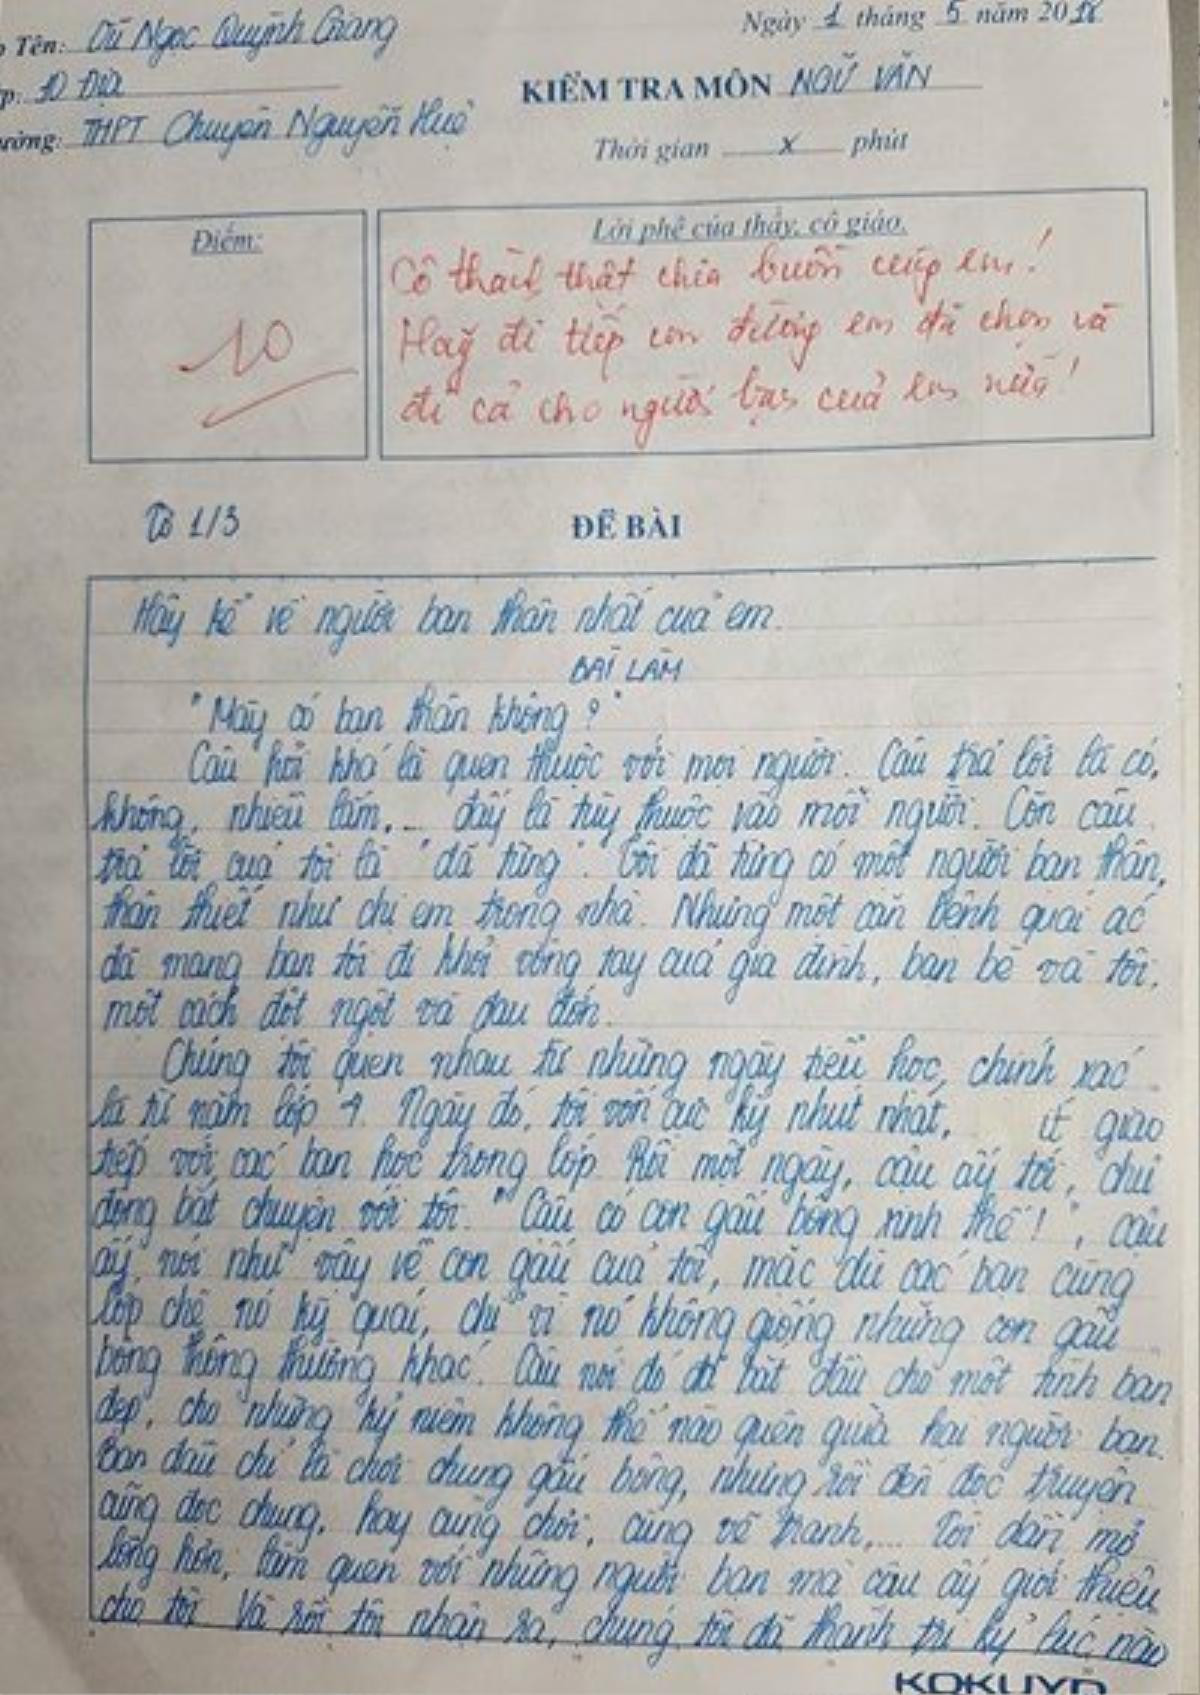 Tên: Cù Ngọc Quỳnh Giang
Ngày 1 tháng 5 năm 2018
10 Địa
KIỂM TRA MÔN NGỮ VĂN
THPT Chuyên Nguyễn Huệ
Thời gian x phút
Điểm:
Lời phê của thầy, cô giáo.
10
Cô thành thật chia buồn cùng em!
Hãy đi tiếp con đường em đã chọn và
đi cả cho người bạn của em nữa!
Tờ 1/3
ĐỀ BÀI
Hãy kể về người bạn thân nhất của em.
BÀI LÀM
"Mày có bạn thân không?"
Câu hỏi khá là quen thuộc với mọi người. Câu trả lời là có,
không, nhiều lắm,... đấy là tùy thuộc vào mỗi người. Còn câu
trả lời của tôi là "đã từng". Tôi đã từng có một người bạn thân,
thân thiết như chị em trong nhà. Nhưng một căn bệnh quái ác
đã mang bạn tôi đi khỏi vòng tay của gia đình, bạn bè và tôi,
một cách đột ngột và đau đớn.
Chúng tôi quen nhau từ những ngày tiểu học, chính xác
là từ năm lớp 4. Ngày đó, tôi vốn cực kỳ nhút nhát, ít giao
tiếp với các bạn học trong lớp. Rồi một ngày, cậu ấy tới, chủ
động bắt chuyện với tôi. "Cậu có con gấu bông xinh thế!", cậu
ấy nói như vậy về con gấu của tôi, mặc dù các bạn cùng
lớp chê nó kỳ quái, chỉ vì nó không giống những con gấu
bông thông thường khác. Câu nói đó đã bắt đầu cho một tình bạn
đẹp, cho những kỷ niệm không thể nào quên giữa hai người bạn.
Ban đầu chỉ là chơi chung gấu bông, nhưng rồi đến đọc truyện
cũng đọc chung, hay cùng chơi, cùng vẽ tranh,... Tôi dần mở
lòng hơn, làm quen với những người bạn mà cậu ấy giới thiệu
cho tôi. Và rồi tôi nhận ra, chúng tôi đã thành tri kỷ lúc nào
KOKUYO